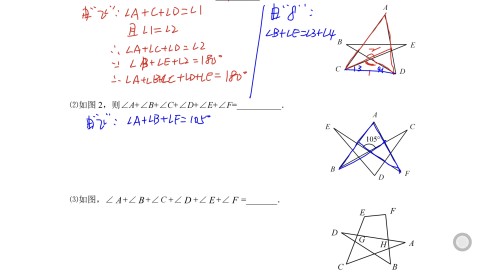 由"飞": ∠A+∠C+∠D=∠1
且∠1=∠2
∴∠A+∠C+∠D=∠2
∵∠B+∠E+∠2=180°
∴∠A+∠B+∠C+∠D+∠E=180°
由"8":
∠B+∠E=∠3+∠4
A
B
E
2
1
3
4
C
D
⑵如图 2，则∠A+∠B+∠C+∠D+∠E+∠F=________.
由"飞": ∠A+∠B+∠F=105°
A
E
C
105°
B
D
F
⑶如图，∠A+∠B+∠C+∠D+∠E+∠F =______.
E
F
D
G
H
A
C
B